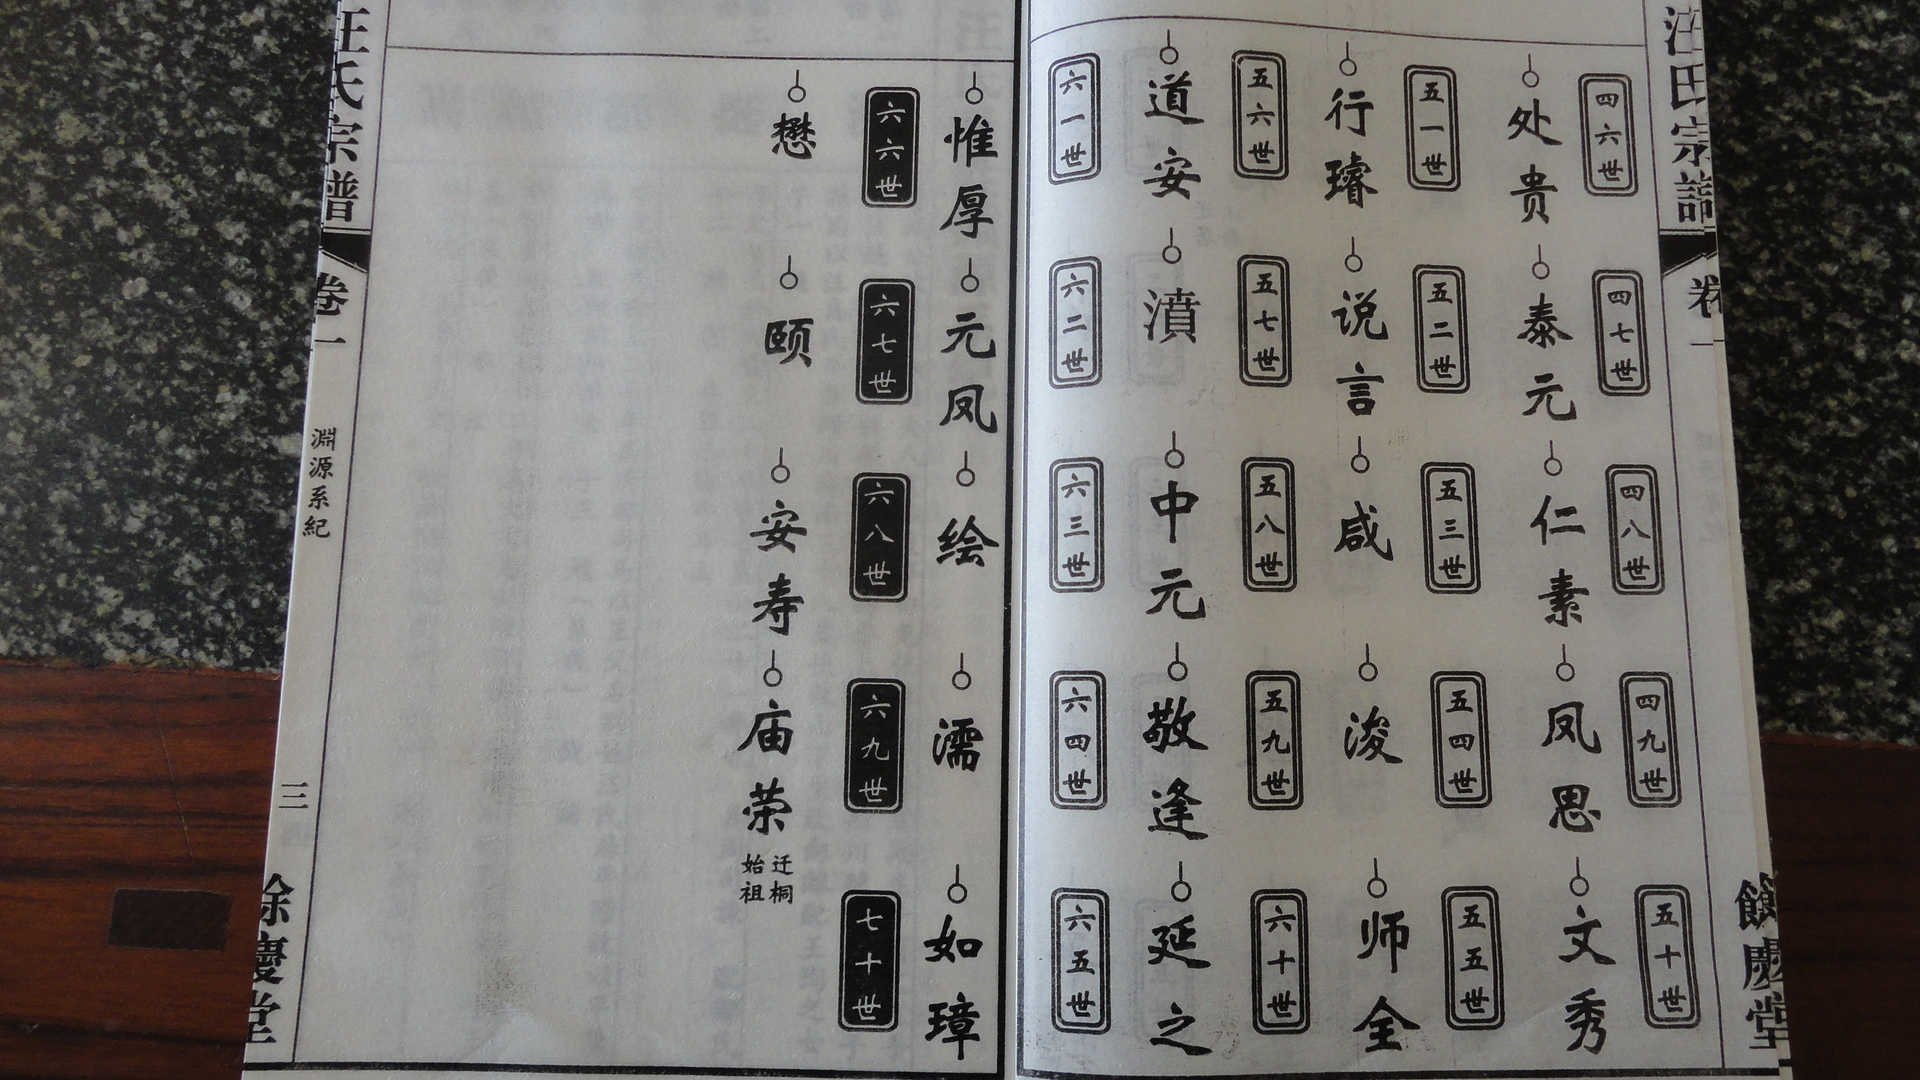 汪氏宗譜 卷一 餘慶堂
四六世 四七世 四八世 四九世 五十世
处贵 泰元 仁素 凤思 文秀
五一世 五二世 五三世 五四世 五五世
行璿 说言 咸 浚 师全
五六世 五七世 五八世 五九世 六十世
道安 濆 中元 敬逢 延之
六一世 六二世 六三世 六四世 六五世
惟厚 元凤 绘 濡 如璋
六六世 六七世 六八世 六九世 七十世
懋 颐 安寿 庙荣 迁桐
始祖
汪氏宗譜 卷一 淵源系紀 三 餘慶堂